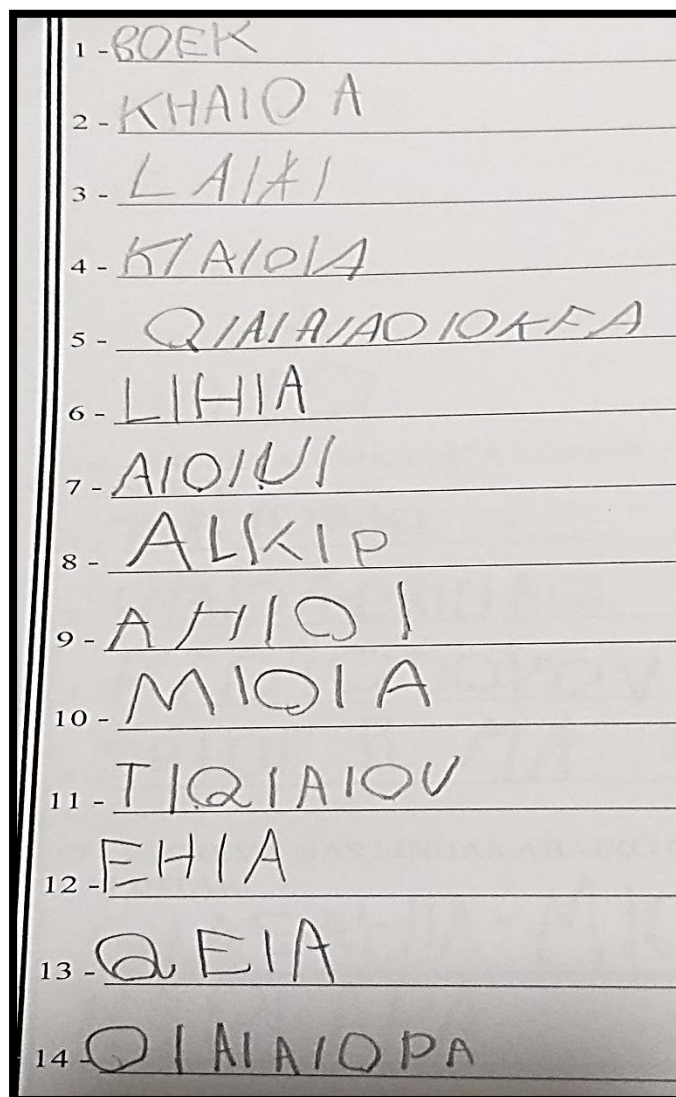 1 - BOEK
2 - KHAIO A
3 - LAIXI
4 - KIAIOIA
5 - QIAIAIAOIOKFA
6 - LIHIA
7 - AIOIUI
8 - ALIKIP
9 - AHIOI
10 - MIQIA
11 - TIQIAIOU
12 - EHIA
13 - QEIA
14 - OIAIAIOPA